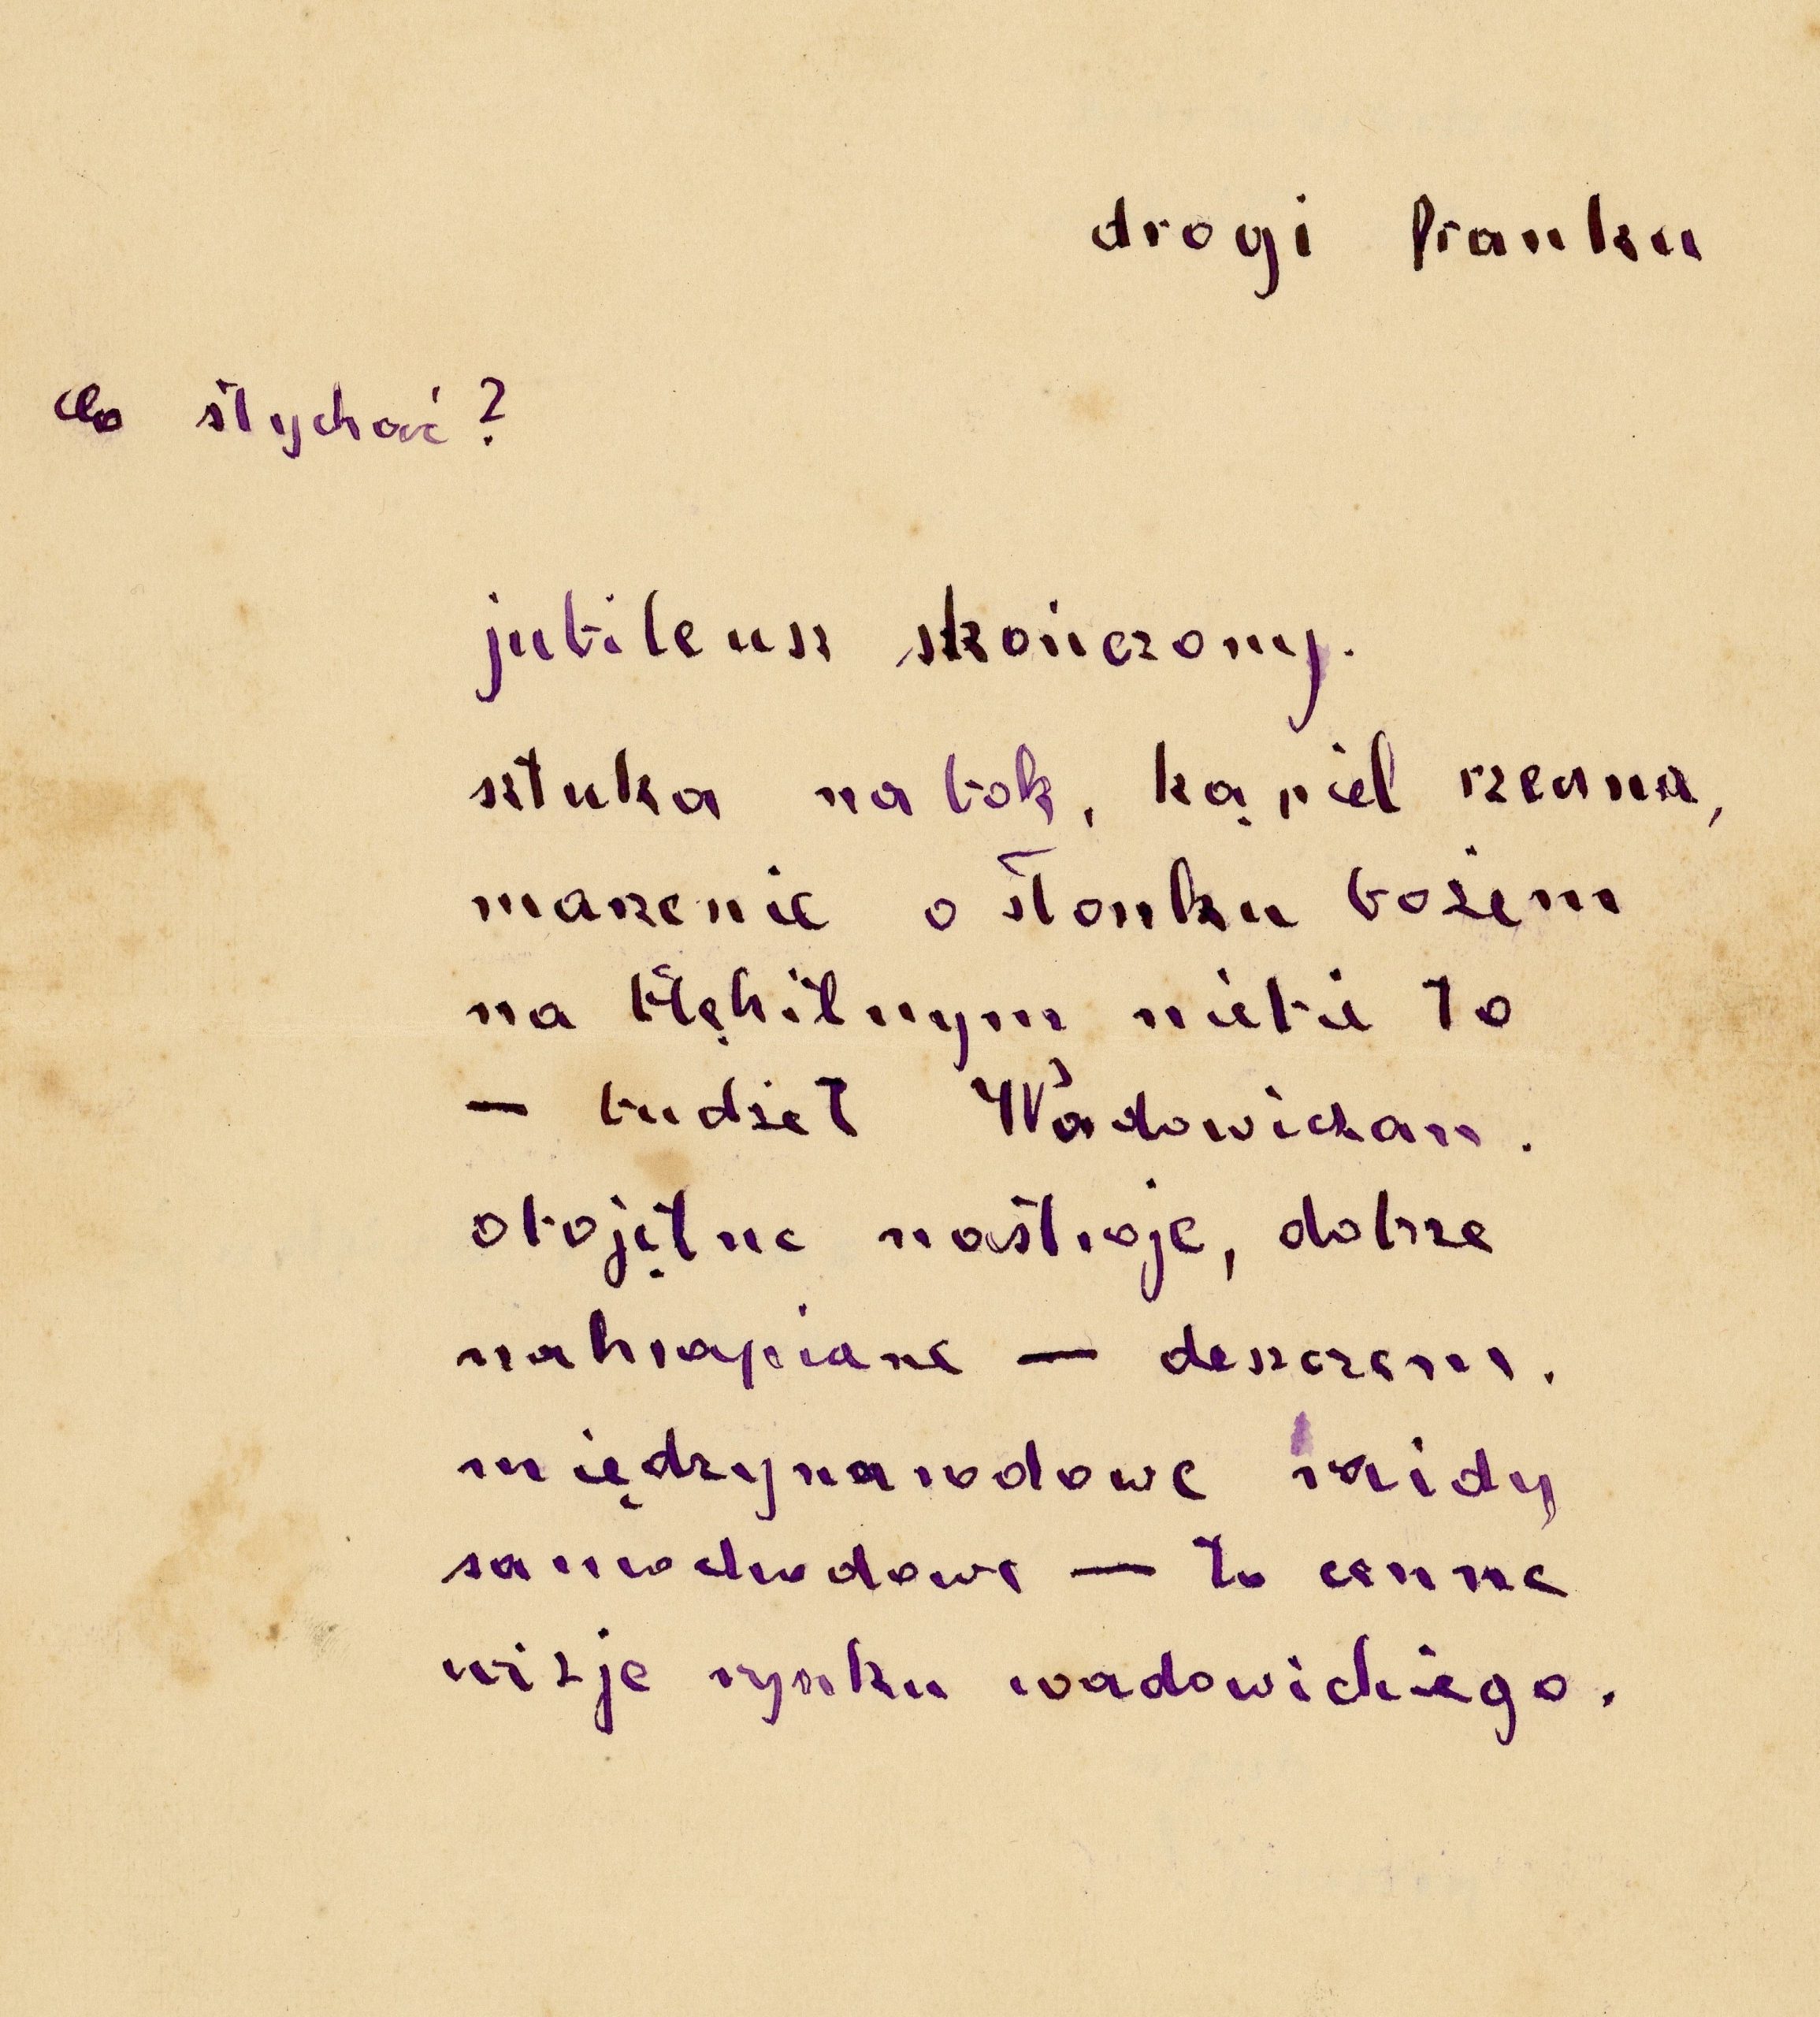 drogi franku
co słychać?
jubileusz skończony.
sztuka na bok, kąpiel rzeczna,
marzenie o słonku bożem
na błękitnym niebie to
— budżet Wadowiczan.
obojętne nastroje, dobrze
nakrapiane — deszczem.
międzynarodowe raidy
samochodowe — to cenne
wizje rynku wadowickiego.